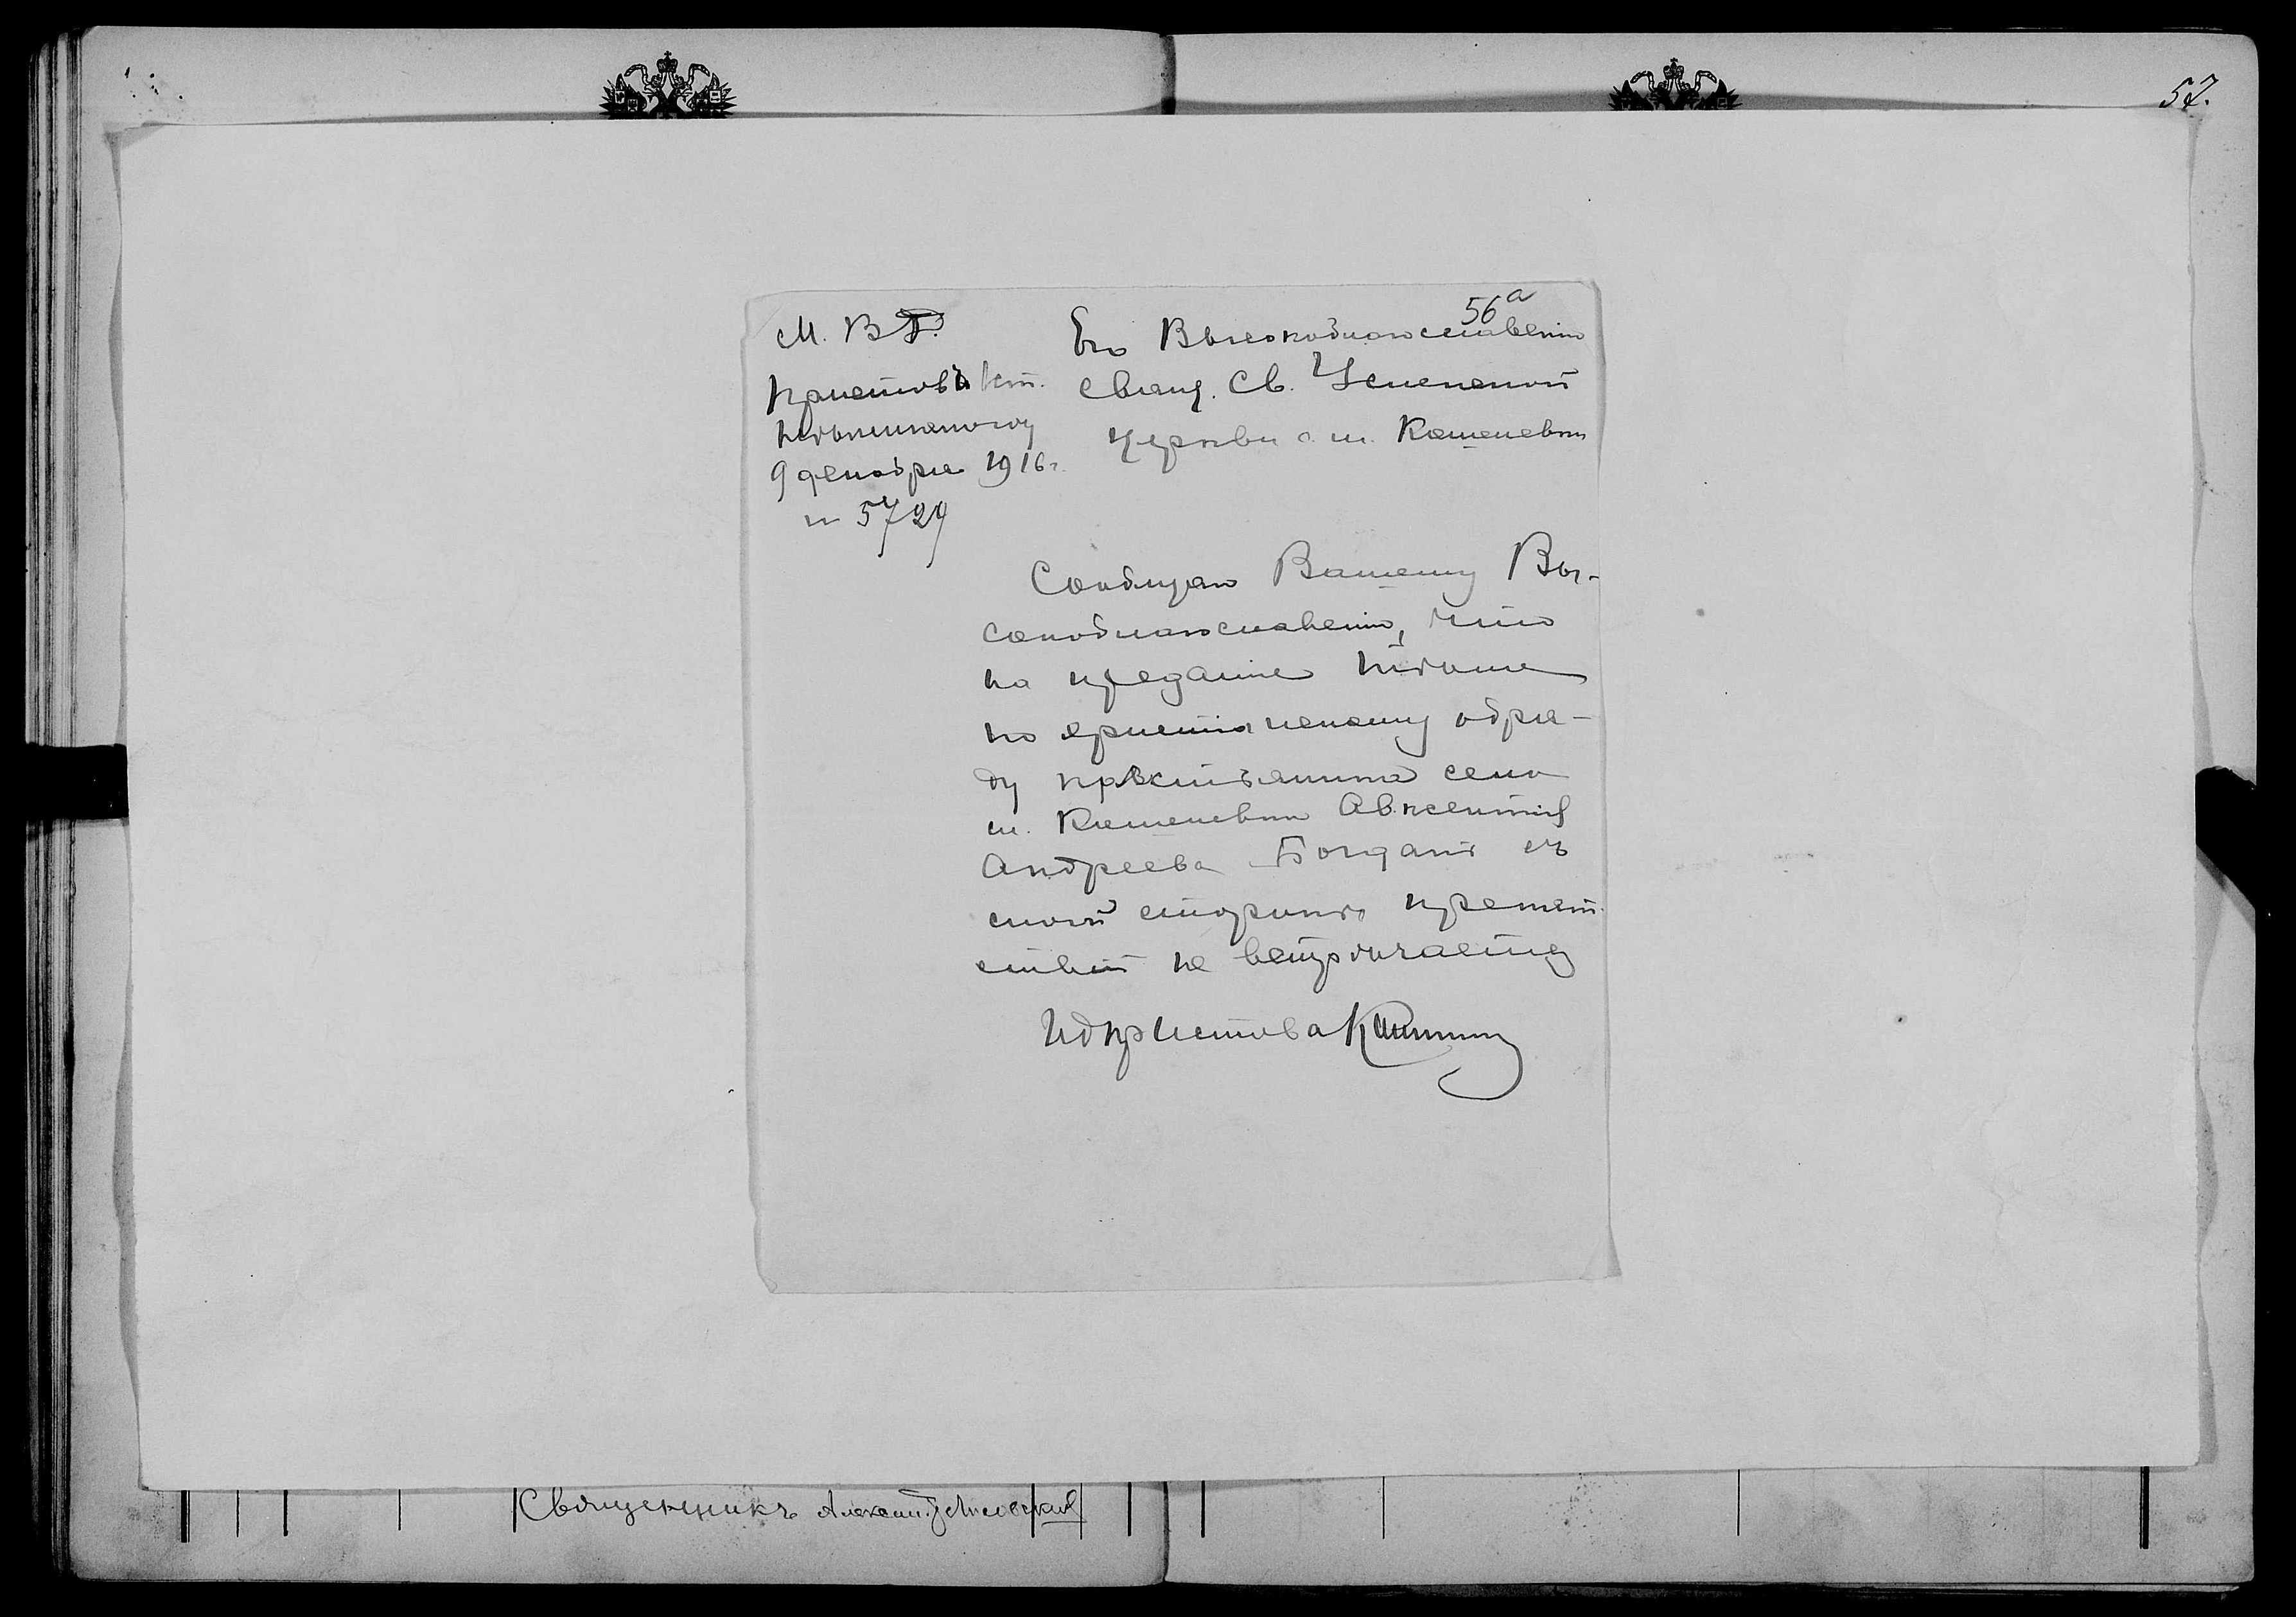 57.
56а
М. В. Д.
Приставъ 1 ст.
9 декабря 1916 г.
№ 5729
Его Высокоблагословенію
Свящ. Св. Успенской
Церкви с. ст. Каменевки
Сообщаю Вашему Вы-
сокоблагословенію, что
на преданіе землѣ
по христіанскому обря-
ду крестьянина села
ст. Авксентій
Андреева Богданъ съ
моей стороны препят-
ствій не встрѣчается
Пристава
Священникъ Александръ Лисовскій